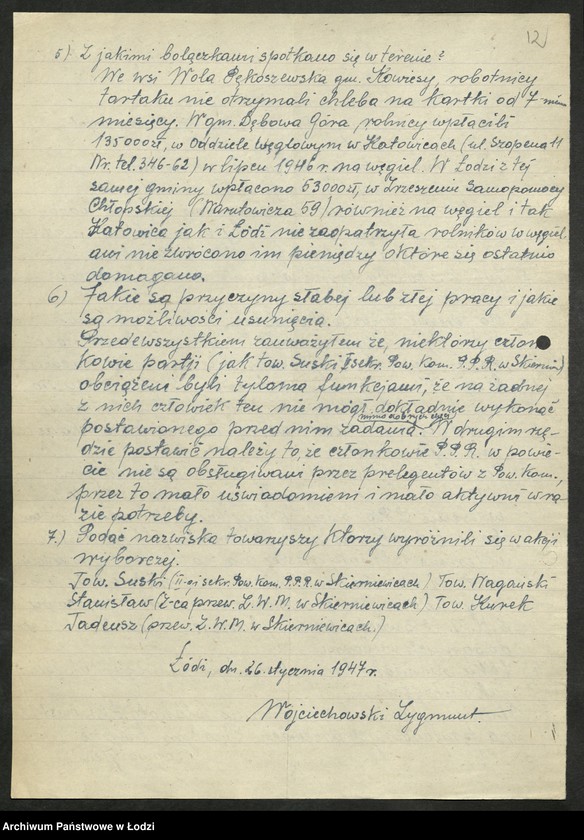 12
5) Z jakimi bolączkami spotkano się w terenie?
We wsi Wola Pękoszewska gm. Kowiesy, robotnicy
tartaku nie otrzymali chleba na kartki od 7-miu
miesięcy. W gm. Dębowa Góra rolnicy wpłacili
135000zł, w Oddziele węglowym w Katowicach (ul. Szopena 11
Nr. tel. 346-62) w lipcu 1946 r. na węgiel. W Łodzi z tej
samej gminy wpłacono 63000zł, w Zrzeszenie Samopomocy
Chłopskiej (Narutowicza 59) również na węgiel i tak
Katowice jak i Łódź nie zaopatrzyła rolników w węgiel
ani nie zwrócono im pieniędzy o które się ostatnio
domagano.
6) Jakie są przyczyny słabej lub złej pracy i jakie
są możliwości usunięcia.
Przedewszystkiem zauważyłem że, niektórzy człon-
kowie partji (jak tow. Suski II sekr. Pow. Kom. P.P.R. w Skierniew.)
obciążeni byli tyloma funkcjami, że na żadnej
z nich człowiek ten nie mógł dokładnie wykonać
mimo dobrych chęci
postawionego przed nim zadania. W drugim rzę-
dzie postawić należy to, że członkowie P.P.R. w powie-
cie nie są obsługiwani przez prelegentów z Pow. Kom.,
przez to mało uświadomieni i mało aktywni w ra-
zie potrzeby.
7.) Podać nazwiska towarzyszy którzy wyróżnili się w akcji
wyborczej.
Tow. Suski (II-gi sekr. Pow. Kom. P.P.R. w Skierniewicach) Tow. Wagański
Stanisław (Z-ca przew. Z.W.M. w Skierniewicach) Tow. Kurek
Tadeusz (przew. Z.W.M. w Skierniewicach.)
Łódź, dn. 26. stycznia 1947 r.
Wojciechowski Zygmunt.
Archiwum Państwowe w Łodzi